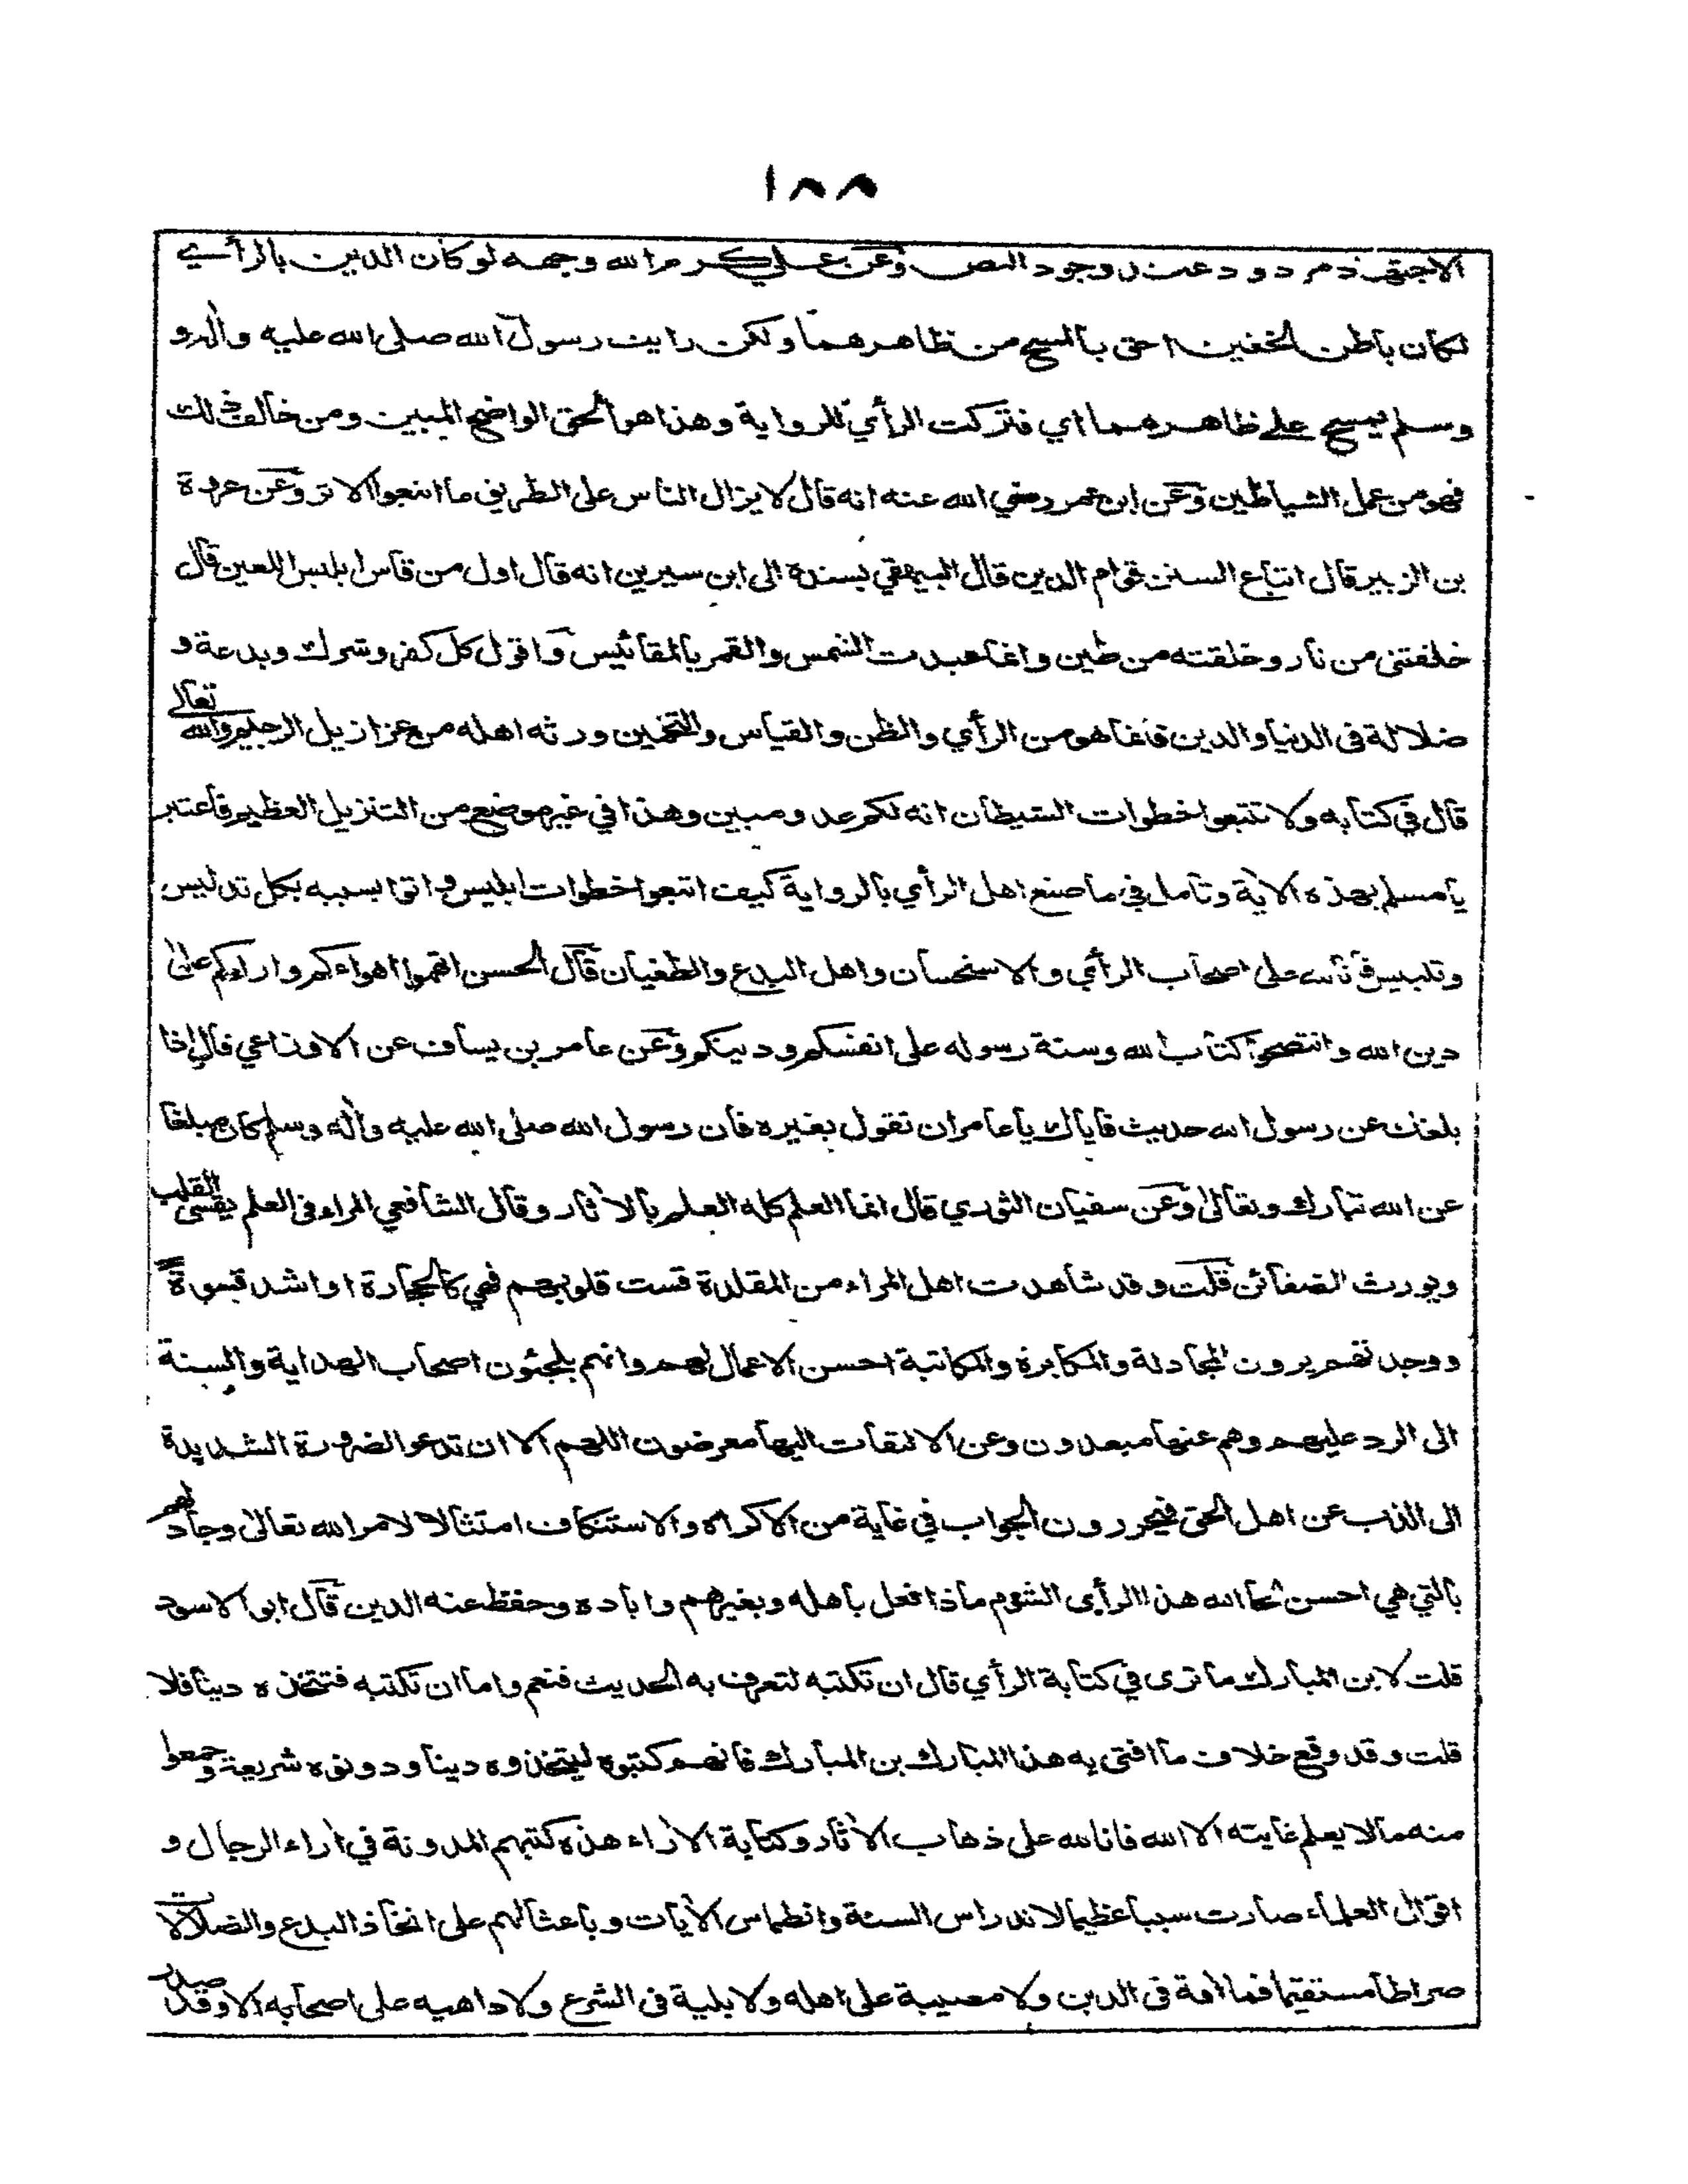 ١٨٨
الاجتهاد مردود عند وجود النص وعن علي كرم الله وجهه لو كان الدين بالرأي
لكان باطن الخفين احق بالمسح من ظاهرهما ولكن رايت رسول الله صلى الله عليه واله و
وسلم يمسح على ظاهرهما اي فتركت الرأي للرواية وهذا هو الحق الواضح المبين ومن خالف ذلك
فهو من عمل الشياطين وعن ابن عمر رضي الله عنه انه قال لا يزال الناس على الطريق ما اتبعوا الاثر وعن عروة
بن الزبير قال اتباع السنن قوام الدين قال البيهقي بسنده الى ابن سيرين انه قال اول من قاس ابليس اللعين قال
خلقتني من نار وخلقته من طين وانما عبدت الشمس والقمر بالمقائيس واقول كل كفر وشرك وبدعة و
ضلالة في الدنيا والدين فانما هو من الرأي والظن والقياس والتخمين ورثه اهله من عزازيل الرجيم والله تعالى
قال في كتابه ولا تتبعوا خطوات الشيطان انه لكم عدو مبين وهذا في غير موضع من التنزيل العظيم فاعتبر
يا مسلم بهذه الاية وتامل في ما صنع اهل الرأي بالرواية كيف اتبعوا خطوات ابليس واتوا بسببه بكل تدليس
وتلبيس على اصحاب الرأي والاستحسان واهل البدع والطغيان قال الحسن اتهموا اهواءكم واراءكم على
دين الله وانتصحوا كتاب الله وسنة رسوله على انفسكم ودينكم وعن عامر بن يساف عن الاوزاعي قال اذا
بلغك عن رسول الله حديث فاياك يا عامر ان تقول بغيره فان رسول الله صلى الله عليه واله وسلم كان مبلغا
عن الله تبارك وتعالى وعن سفيان الثوري قال انما العلم كله العلم بالاثار وقال الشافعي المراء في العلم يقسي القلب
ويورث الضغائن قلت وقد شاهدت اهل المراء من المقلدة قست قلوبهم فهي كالحجارة او اشد قسوة
ووجدتهم يرون المجادلة والمكابرة والمكاتبة احسن الاعمال لهم وانهم يلجئون اصحاب الهداية والسنة
الى الرد عليهم وهم عنها مبعدون وعن الالتفات اليها معرضون اللهم الا ان تدعو الضرورة الشديدة
الى الذب عن اهل الحق فيحررون الجواب في غاية من الاكراه والاستنكاف امتثالا لامر الله تعالى وجادلهم
بالتي هي احسن الله هذا الرأي الشوم ماذا فعل باهله وبغيرهم واباده وحفظ عنه الدين قال ابو الاسود
قلت لابن المبارك ما ترى في كتابة الرأي قال ان تكتبه لتعرف به الحديث فنعم واما ان تكتبه فتتخذه دينا فلا
قلت وقد وقع خلاف ما افتى به هذا المبارك بن المبارك فانهم كتبوه ليتخذوه دينا ودونوه شريعة وجمعوا
منه ما لا يعلم غايته الا الله فانا لله على ذهاب الاثار وكتابة الاراء هذه كتبهم المدونة في اراء الرجال و
اقوال العلماء صارت سببا عظيما لاندراس السنة وانطماس الايات وباعثا لهم على اتخاذ البدع والضلالات
صراطا مستقيما فما افة في الدين ولا مصيبة على اهله ولا بلية في الشرع ولا داهيه على اصحابه الا وقد